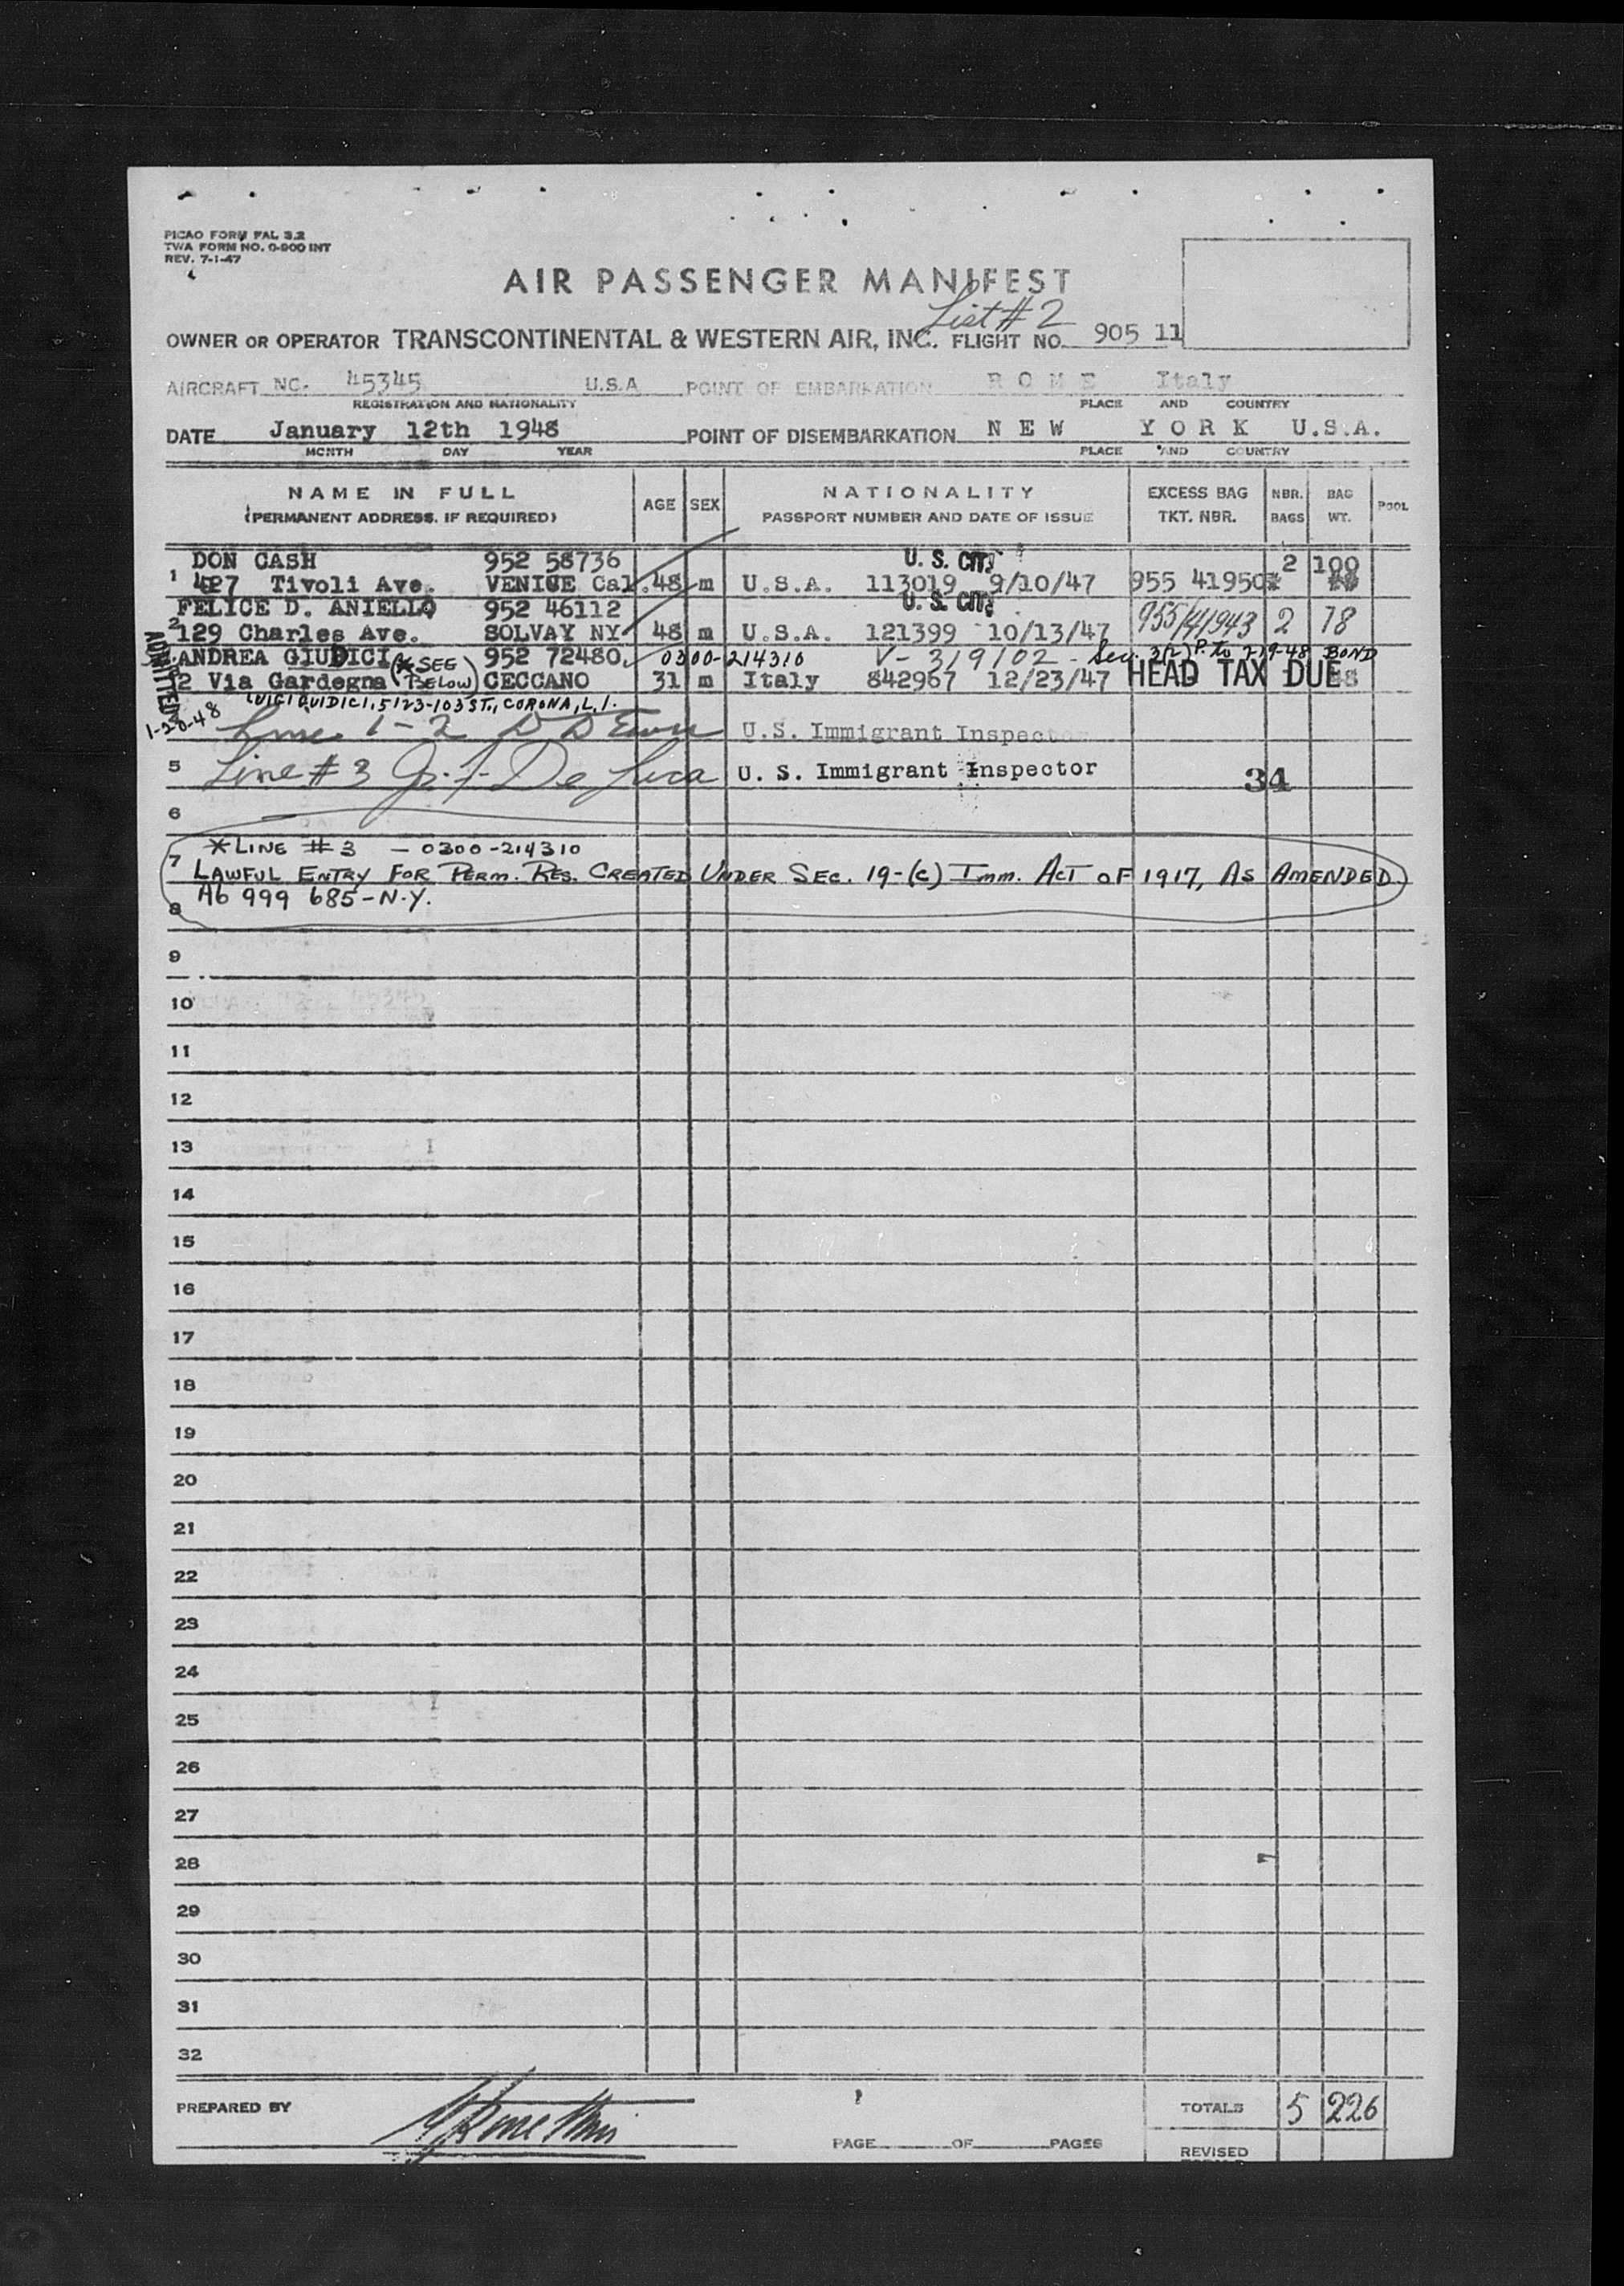 PICAO FORM FAL 3.2
TWA FORM NO. 0-900 INT
REV. 7-1-47
AIR PASSENGER MANIFEST
List # 2
OWNER OR OPERATOR TRANSCONTINENTAL & WESTERN AIR, INC. FLIGHT NO. 905 11
AIRCRAFT NC. 45345 U.S.A POINT OF EMBARKATION ROME Italy
REGISTRATION AND NATIONALITY PLACE AND COUNTRY
DATE January 12th 1948 POINT OF DISEMBARKATION NEW YORK U.S.A.
MONTH DAY YEAR PLACE AND COUNTRY
NAME IN FULL AGE SEX NATIONALITY EXCESS BAG NBR. BAG POOL
(PERMANENT ADDRESS, IF REQUIRED) PASSPORT NUMBER AND DATE OF ISSUE TKT. NBR. BAGS WT.
DON CASH 952 58736 U. S. CIT. 2 100
1 427 Tivoli Ave. VENICE Cal. 48 m U.S.A. 113019 9/10/47 955 41950
FELICE D. ANIELLO 952 46112 U. S. CIT.
2 129 Charles Ave. SOLVAY NY 48 m U.S.A. 121399 10/13/47 955/41943 2 78
ANDREA GIUDICI (* SEE BELOW) 952 72480 0300-214310 V-319102 - Sec. 3(2) P. to 7-19-48 BOND
2 Via Gardegna CECCANO 31 m Italy 842967 12/23/47 HEAD TAX DUE 48
ADMITTED
1-20-48
LUIGI GUIDICI, 5123-103 ST., CORONA, L.I.
Line 1-2 U.S. Immigrant Inspector
5 Line # 3 G. F. De Luca U. S. Immigrant Inspector 34
6
* LINE # 3 - 0300-214310
7 LAWFUL ENTRY FOR PERM. RES. CREATED UNDER SEC. 19-(C) IMM. ACT OF 1917, AS AMENDED
8 A6 999 685-N.Y.
9
10
11
12
13
14
15
16
17
18
19
20
21
22
23
24
25
26
27
28
29
30
31
32
PREPARED BY TOTALS 5 226
PAGE OF PAGES REVISED